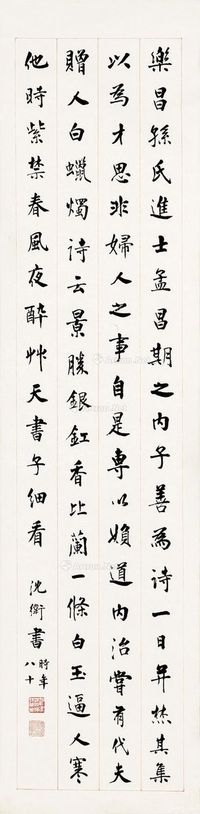 樂昌孫氏進士孟昌期之內子善為詩一日并焚其集
以為才思非婦人之事自是專以媍道內治嘗有代夫
贈人白蠟燭詩云景勝銀釭香比蘭一條白玉逼人寒
他時紫禁春風夜醉艸天書子細看
沈衛書
時年
八十